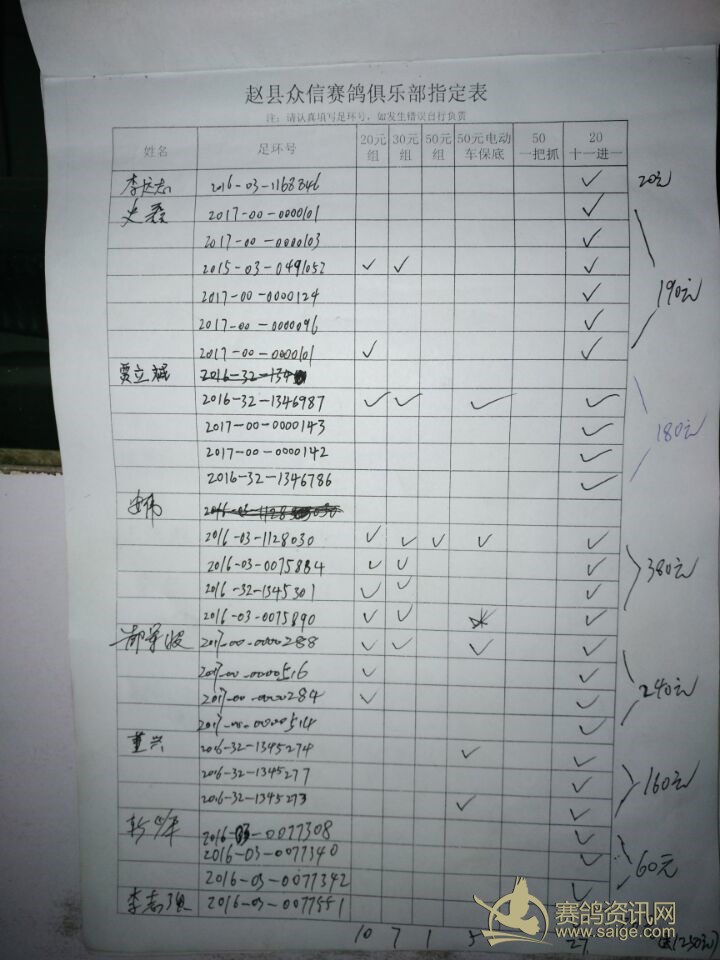 赵县众信赛鸽俱乐部指定表
注：请认真填写足环号，如发生错误自行负责
姓名 足环号 20元组 30元组 50元组 50元电动车保底 50一把抓 20十一进一
2016-03-1168846 ✓ 20元
史磊 2017-00-0000101 ✓
2017-00-0000103 ✓
2015-03-0491052 ✓ ✓ ✓
2017-00-0000124 ✓ 190元
2017-00-0000096 ✓
2017-00-0000101 ✓ ✓
贾立斌
2016-32-1346987 ✓ ✓ ✓ ✓
2017-00-0000143 ✓ 180元
2017-00-0000142 ✓
2016-32-1346786 ✓
2016-03-1128030 ✓ ✓ ✓ ✓ ✓
2016-03-0075884 ✓ ✓ ✓ 380元
2016-32-1345301 ✓ ✓ ✓
2016-03-0075890 ✓ ✓ ✓
2017-00-0000288 ✓ ✓ ✓ ✓
2017-00-0000516 ✓ ✓
2017-00-0000284 ✓ ✓ 240元
2017-00-0000514 ✓
董兴 2016-32-1345274 ✓ ✓
2016-32-1345277 ✓ 160元
2016-32-1345273 ✓ ✓
2016-03-0077308 ✓
2016-03-0077340 ✓ 60元
2016-03-0077342 ✓
李志强 2016-03-0077551
10 7 1 5 27
赛鸽资讯网
www.saige.com